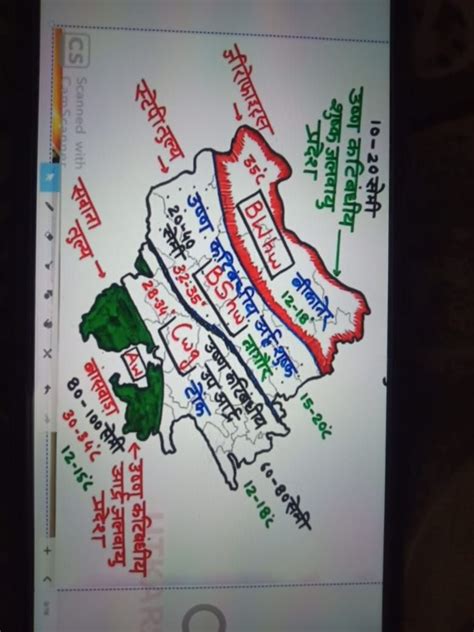 CS
Scanned with
CamScanner
10-20 सेमी
उष्ण कटिबंधीय
शुष्क जलवायु
प्रदेश
जीरोफाइट्स
स्टेपी तुल्य
सवाना
तुल्य
35°C
BWhw
बीकानेर
12-18
उष्ण कटिबंधीय अर्द्ध शुष्क
20-40
सेमी
32-35°
BShw
नागौर
15-20c
28-34°
Cwg
उष्ण कटिबंधीय
उप आर्द्र
टोंक
60-80 सेमी
12-18c
Aw
बांसवाड़ा
80-100 सेमी
30-34c
12-15c
उष्ण कटिबंधीय
आर्द्र जलवायु
प्रदेश
UTKAR